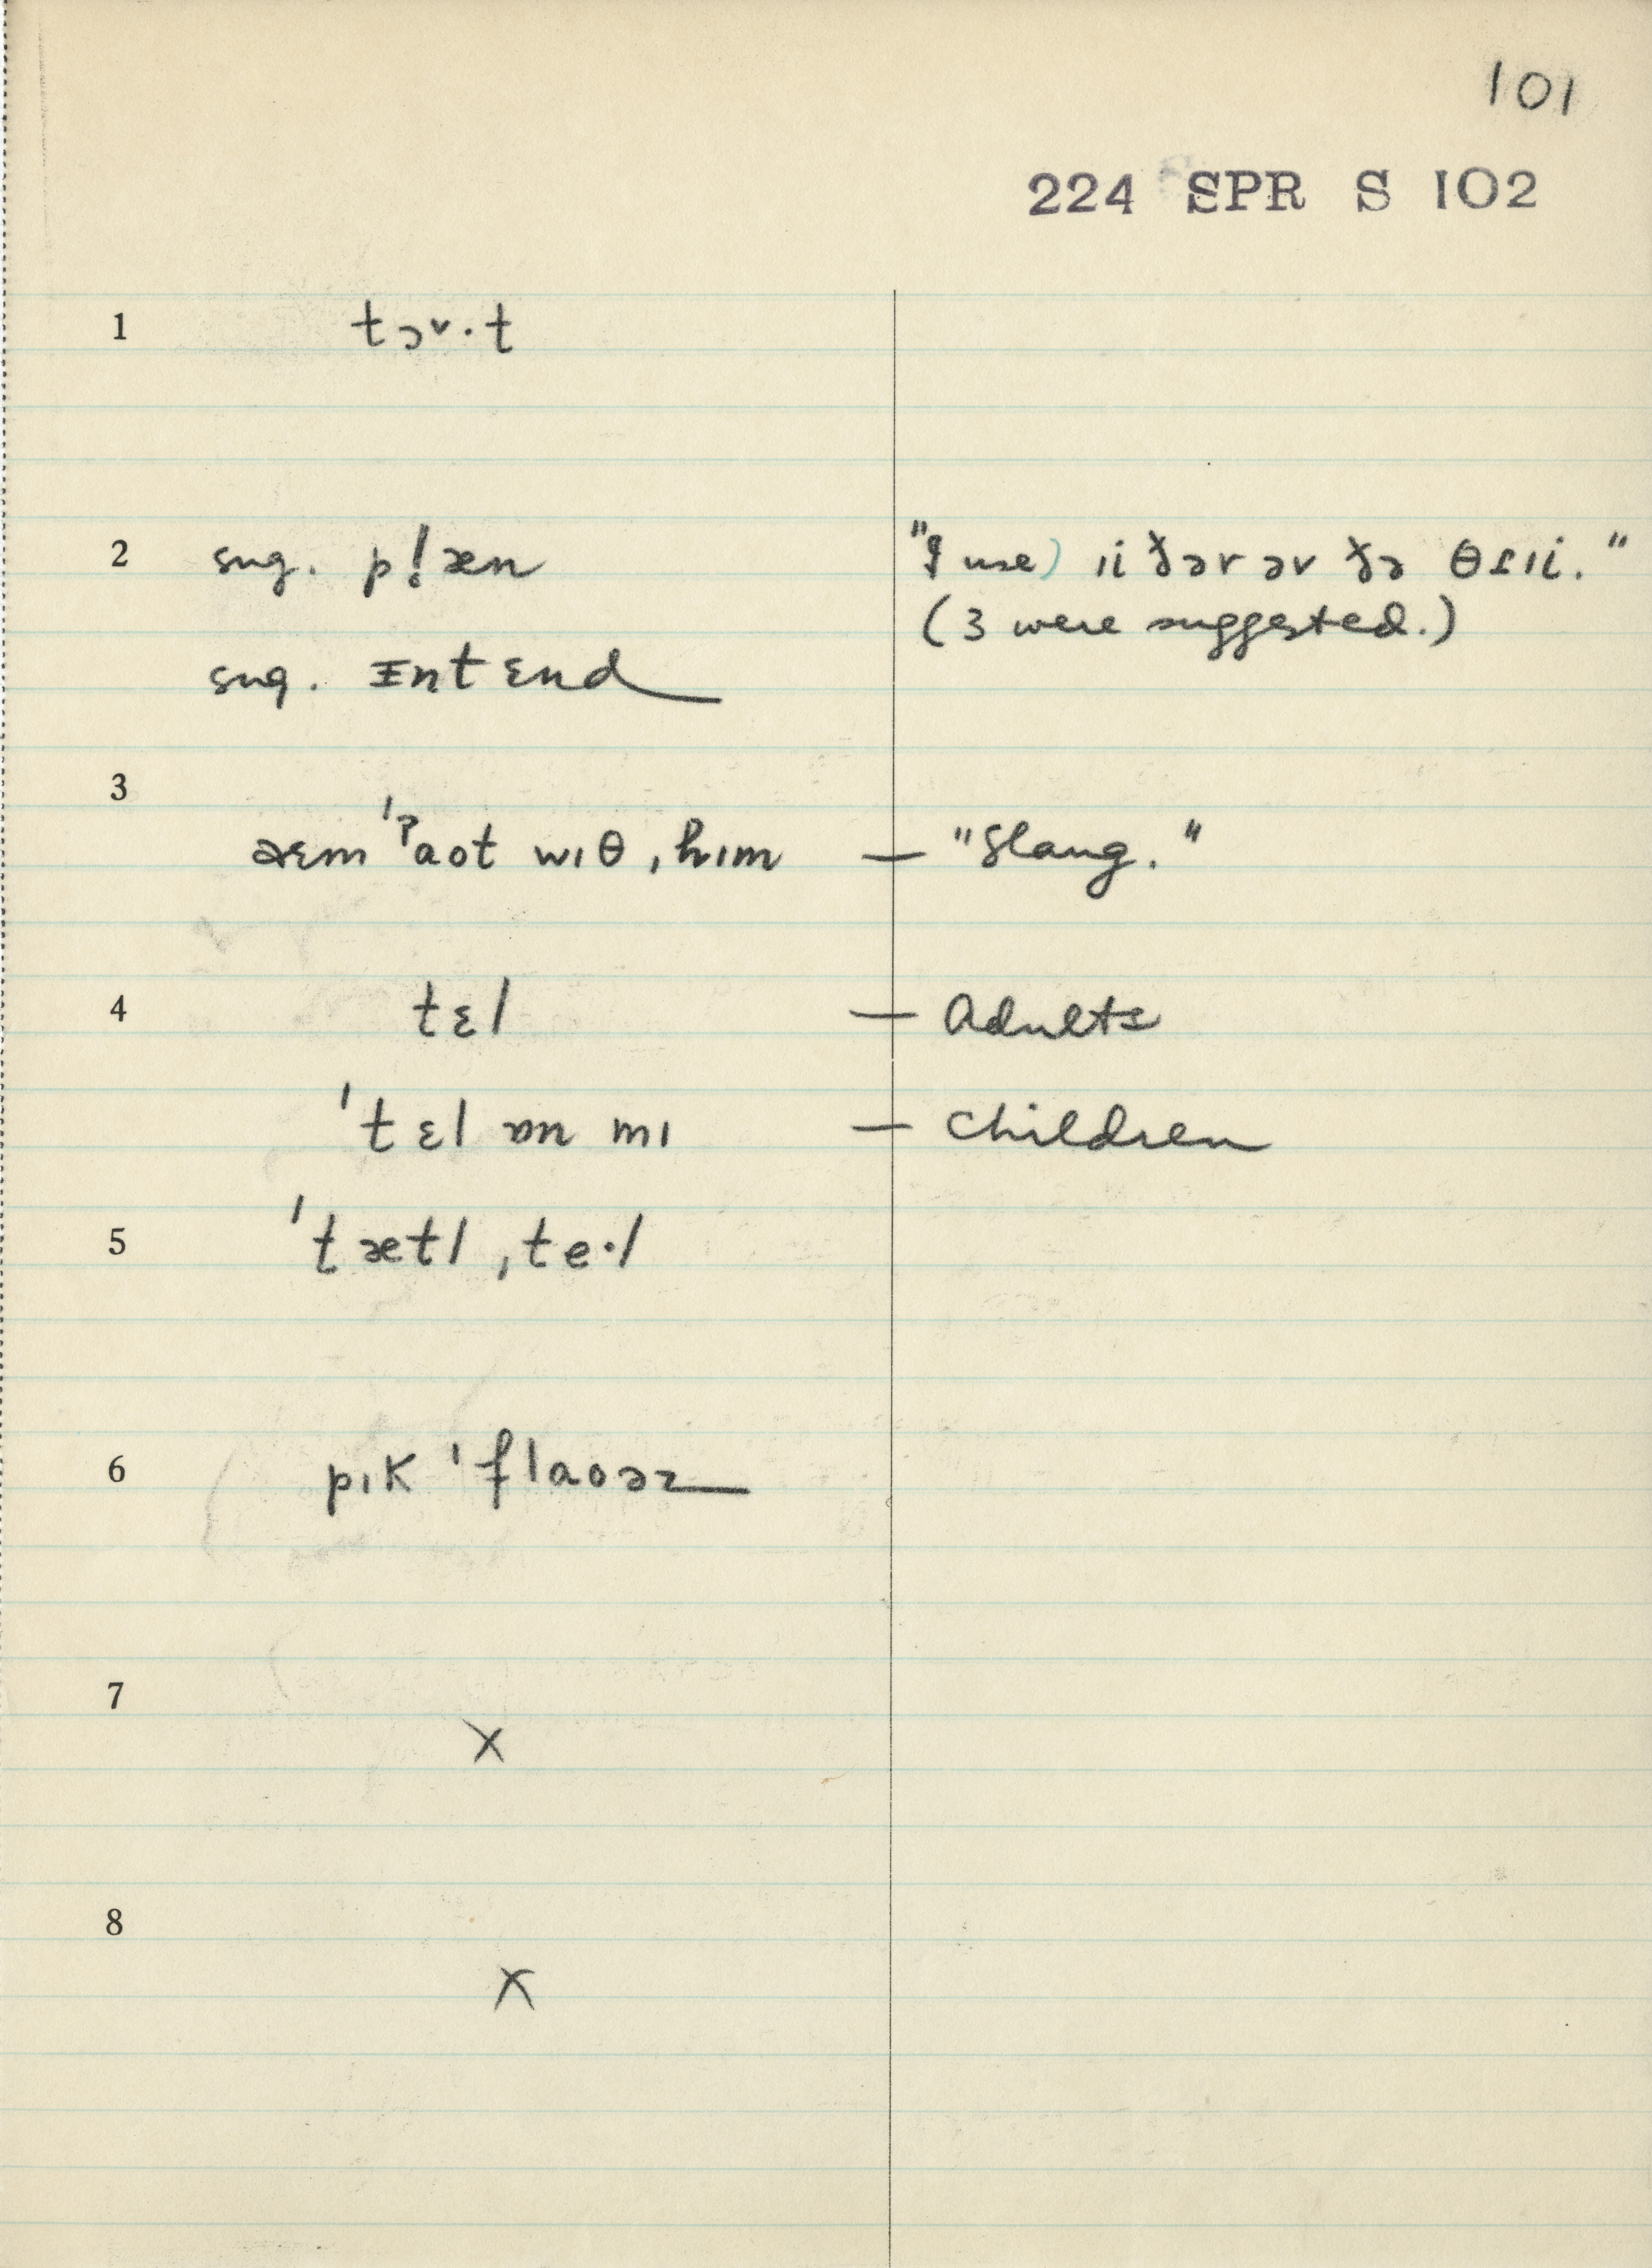 101
224 SPR S 102
1 tɔᵛ·t
2 sug. pl̥æn "I use) ɪiðər əv ðə θɾɪi."
(3 were suggested.)
sug. ɪntɛnd
3 æɛm ˈʔaʊt wɪθ ˌhɪm — "Slang."
4 tɛl — Adults
ˈtɛl ɒn mɪ — Children
5 ˈtætl ˌte·l
6 pɪk ˈflaʊəz
7 X
8 X